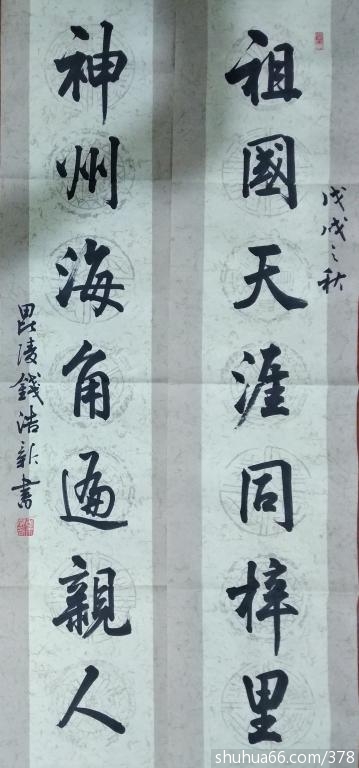 戊戌之秋
祖國天涯同梓里
神州海角遍親人
毘陵錢浩新書
shuhua66.com/378